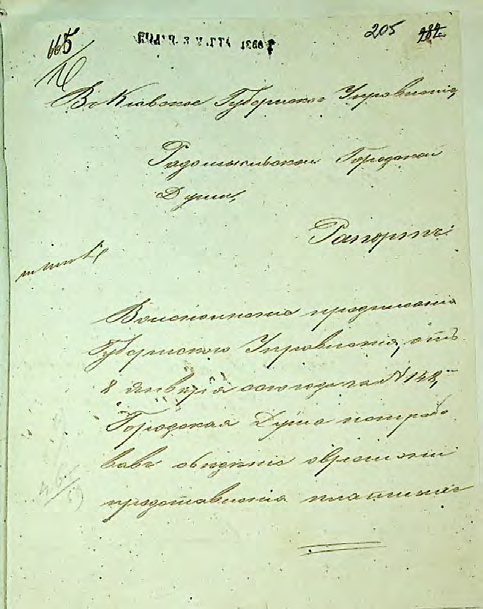 665
205 484
Въ Кіевское Губернское Управленіе
Радомысльской Городской
Думы,
Рапортъ.
Во исполненіе предписанія
Губернскаго Управленія, отъ
8 Января сего года за № 148,
Городская Дума истребо
вавъ свѣденіе о времени
представленія